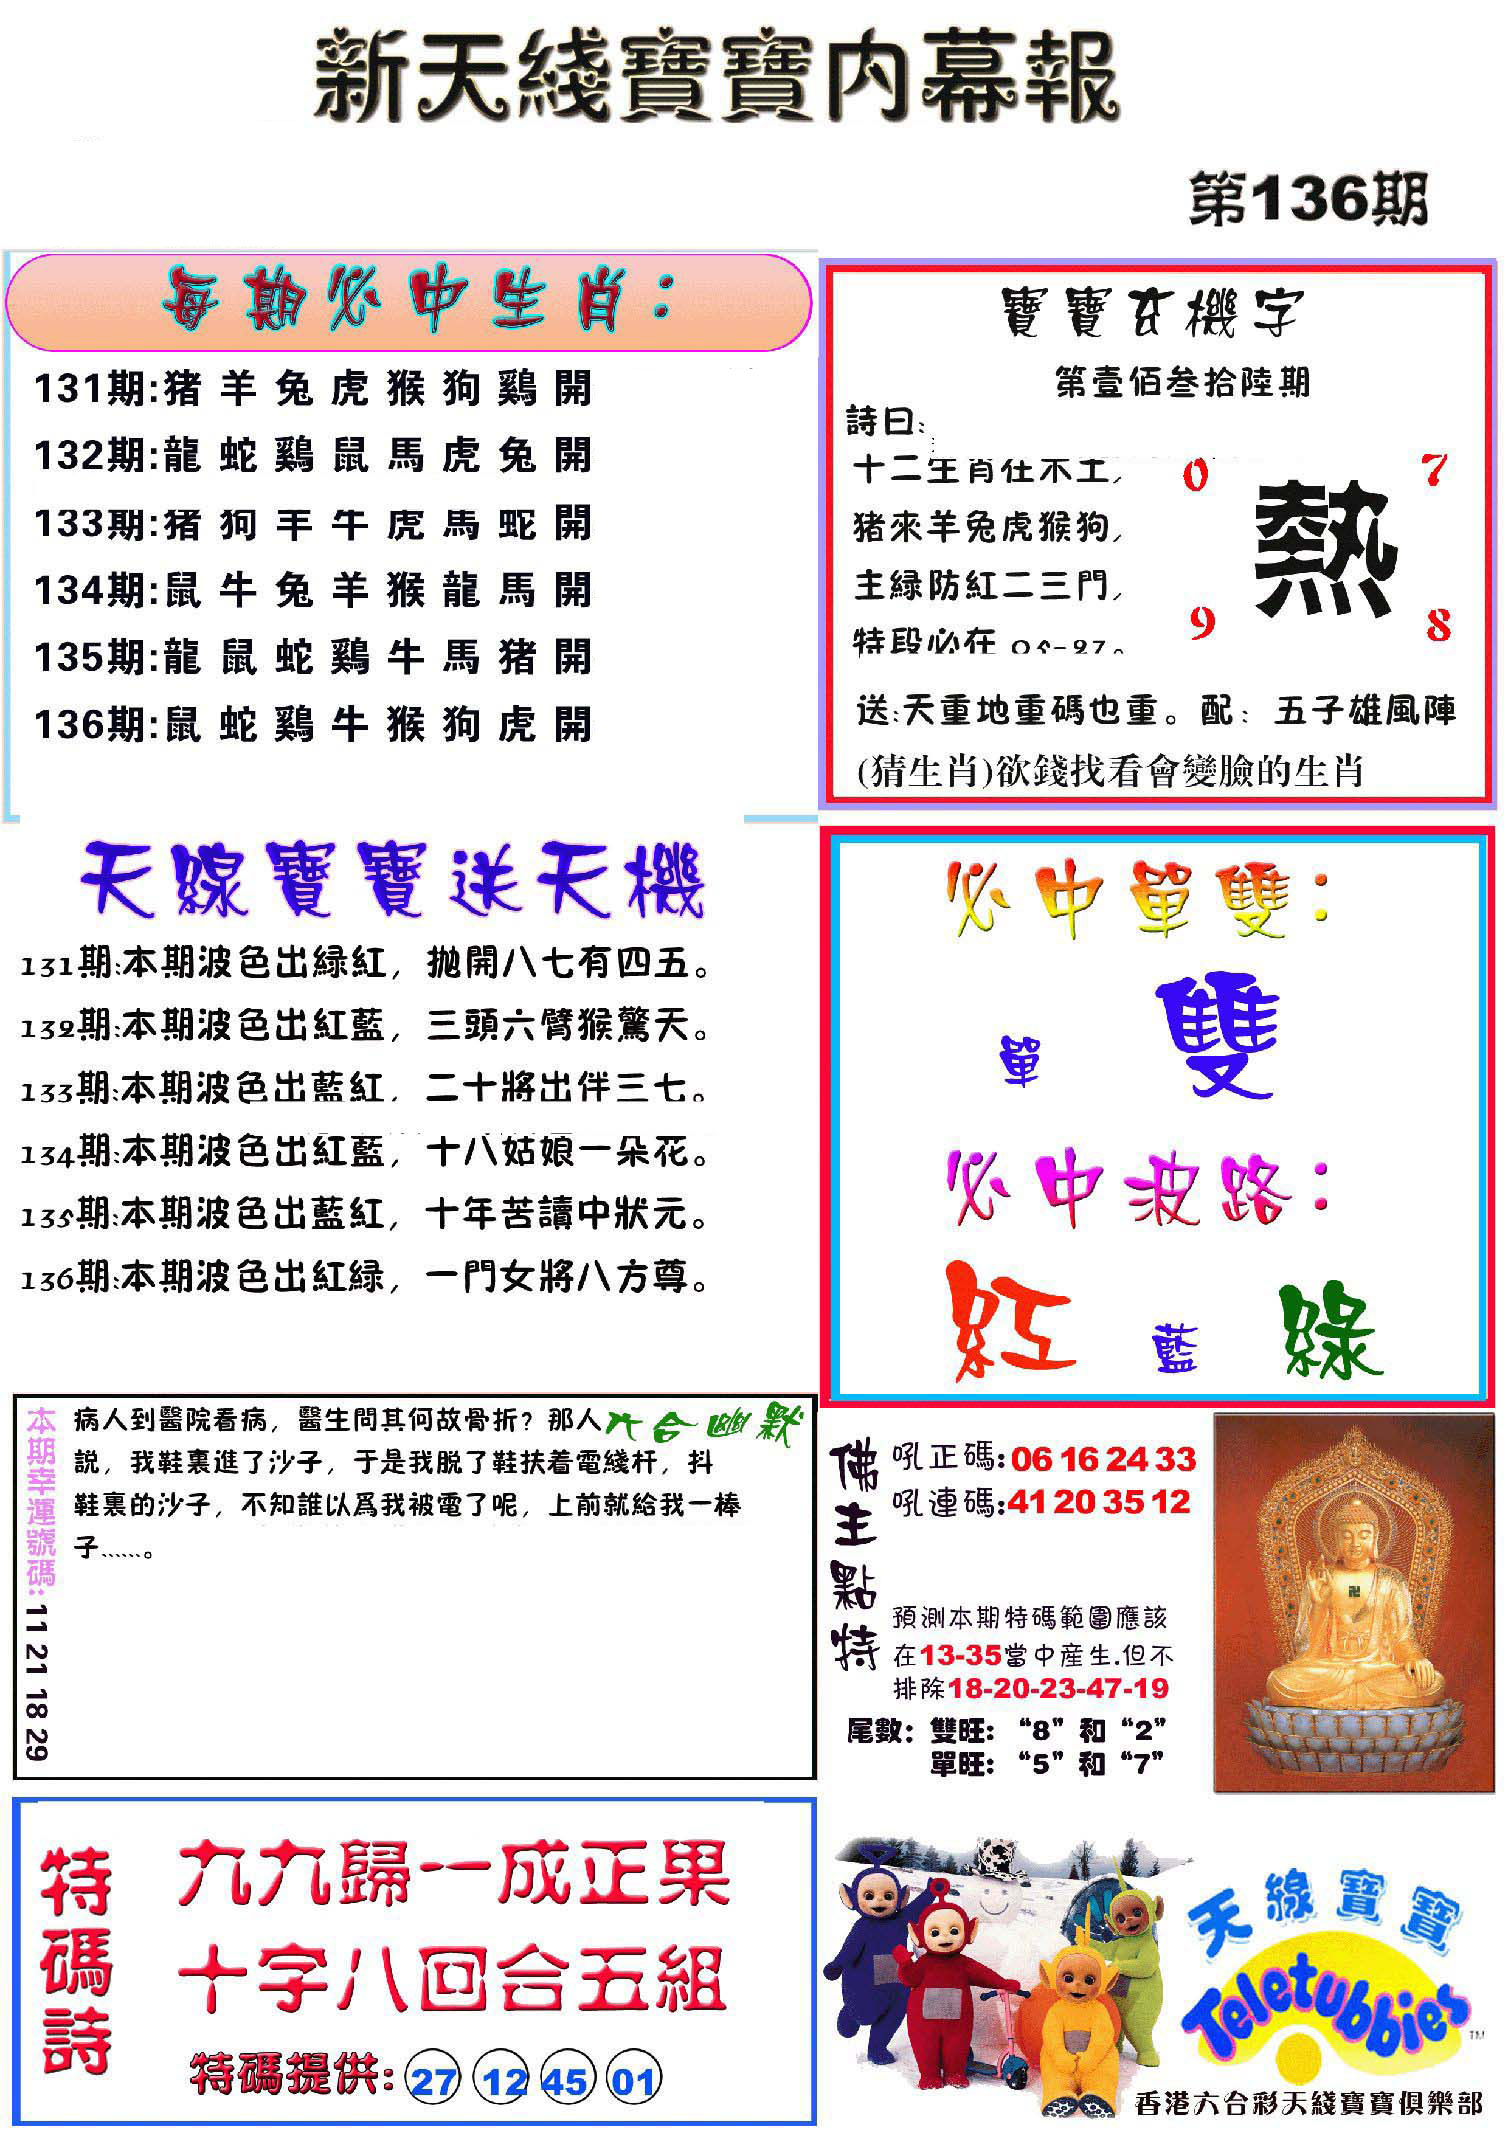 新天綫寶寶内幕報
第136期
每期必中生肖：
131期:猪羊兔虎猴狗鷄開
132期:龍蛇鷄鼠馬虎兔開
133期:猪狗羊牛虎馬蛇開
134期:鼠牛兔羊猴龍馬開
135期:龍鼠蛇鷄牛馬猪開
136期:鼠蛇鷄牛猴狗虎開
寶寶玄機字
第壹佰叁拾陸期
詩曰:
十二生肖在木土,
猪來羊兔虎猴狗,
主緑防紅二三門,
特段必在 05-27。
0 7
熱
9 8
送:天重地重碼也重。配：五子雄風陣
(猜生肖)欲錢找看會變臉的生肖
天線寶寶送天機
131期:本期波色出緑紅，拋開八七有四五。
132期:本期波色出紅藍，三頭六臂猴驚天。
133期:本期波色出藍紅，二十將出伴三七。
134期:本期波色出紅藍，十八姑娘一朵花。
135期:本期波色出藍紅，十年苦讀中狀元。
136期:本期波色出紅緑，一門女將八方尊。
必中單雙：
單 雙
必中波路：
紅 藍 綠
本期幸運號碼: 11 21 18 29
六合幽默
病人到醫院看病，醫生問其何故骨折？那人
説，我鞋裏進了沙子，于是我脱了鞋扶着電綫杆，抖
鞋裏的沙子，不知誰以爲我被電了呢，上前就給我一棒
子......。
佛主點特
吼正碼:06 16 24 33
吼連碼:41 20 35 12
預測本期特碼範圍應該
在13-35當中産生.但不
排除18-20-23-47-19
尾數：雙旺：“8”和“2”
單旺：“5”和“7”
特碼詩
九九歸一成正果
十字八回合五組
特碼提供: 27 12 45 01
天線寶寶
Teletubbies
TM
香港六合彩天綫寶寶俱樂部